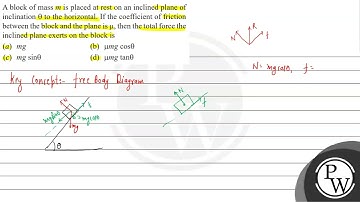 A block of mass m is placed at rest on an inclined plane of
inclination θ to the horizontal. If the coefficient of friction
between the block and the plane is μ, then the total force the
inclined plane exerts on the block is
(a) mg (b) μmg cosθ
(c) mg sinθ (d) μmg tanθ
N R f
N = mg cosθ, f =
Key Concept:- free Body Diagram
N f
mg sinθ mg cosθ
mg
θ
N f
P
W